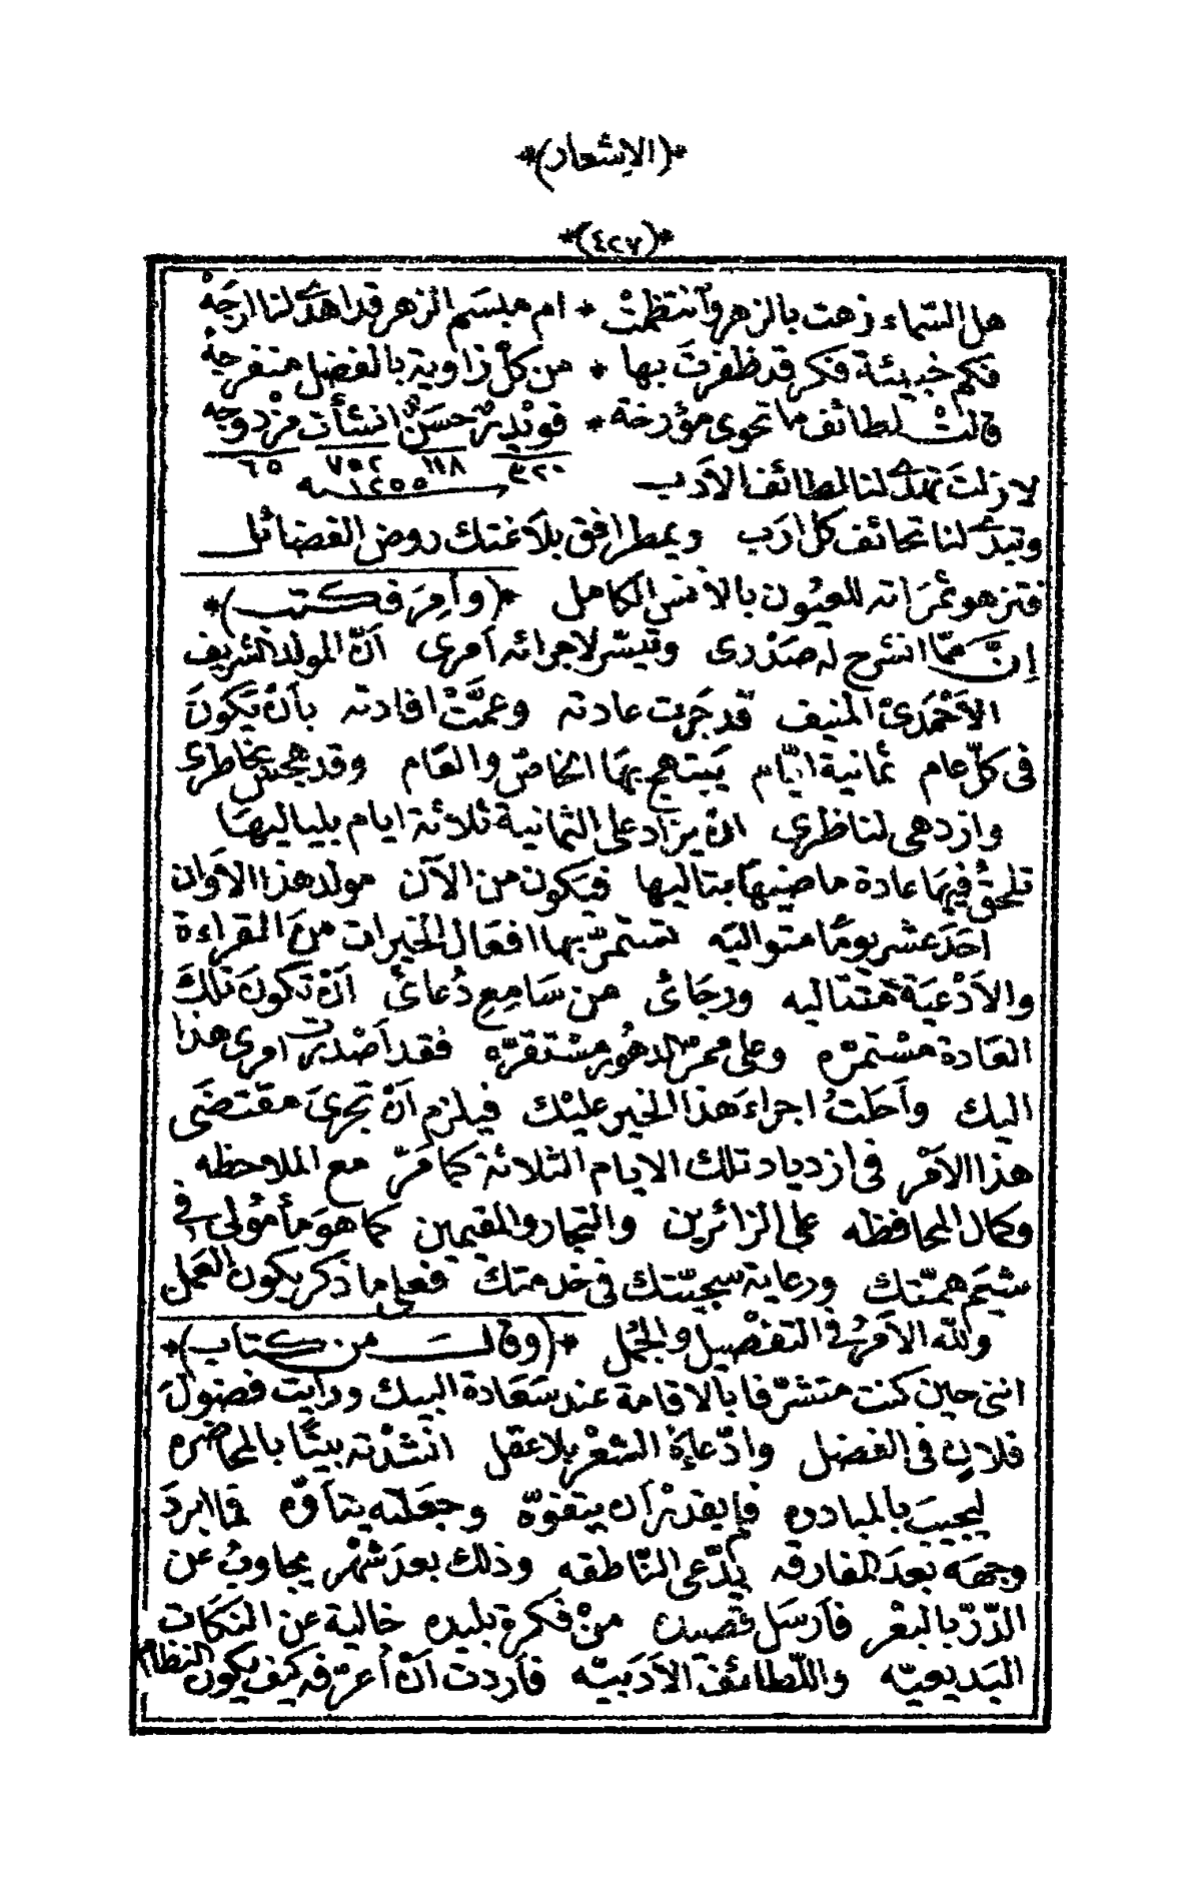 *(الاشعار)*
*(٤٢٧)*
هل السّماء زهت بالزهر وٱنتظمتْ * ام مبلسم الزهر قد اهدى لنا ارجَهْ
فكم خبيئة فكر قد ظفرتَ بها * من كلّ زاوية بالفضل منفرجهْ
قالتْ لطائف ما تحوى مؤرخة * قويْدِرٌ حسَنٌ انشأت مزْدوجه
٣٢٠ ١١٨ ٧٥٢ ٦٥
لا زلتَ تهدى لنا لطائف الأدب
١٢٥٥ سنه
وتبدى لنا تحائف كل ارَب ويمطر افق بلاَغتك روض الفضائل
فتزهو ثمرَاته للعيُون بالأنس الكامل *(وأمِرَ فكتب)*
إنّ ممّا انشرح له صَدْرى وتيسّر لاجرائه أمرى أنّ المولد الشريف
الأحْمَدىّ المنيف قد جَرت عادته وعمَّتْ افادته بأنْ يَكونَ
فى كلّ عام ثمانية ايّام يَبتهج بهَا الخاصّ والعَام وقد هجسَ بخاطرى
وازدهى لناظرى انْ يزَاد على الثمانية ثلاثة ايام بلياليهَا
تلحقُ فيهَا عادة ماضيهَا بتاليها فيَكون من الآن مولد هذا الأوان
احَدَ عشر يومًا متواليَه تستمرّ بها افعَال الخيرات منَ القراءة
والاَدْعيَة مُتتاليه ورجَائى من سَامِع دُعائىْ أنْ تكونَ تلكَ
العَادة مسْتمرّه وعلى ممرّ الدهُور مسْتقرّه فقد أصْدرت امرى هذا
اليك وأحَلتُ اجراءَ هذا الخير عليْك فيلزم أنْ تجرىَ مقتضَى
هذا الاَمْر فى ازدياد تلك الايام الثلاثة كما مَرّ مع الملاحظه
وكمال المحافظه على الزائرين والتجار والمقيمين كما هوَ مأمُولى فى
شيَم همّتك ورعاية سجيّتك فى خدمتك فعلى ما ذكر يكون العَمل
ولله الأمْر فى التفصْيل والجُمل *(وقالَ من كتاب)*
اننى حين كنت متشرّفا بالاقامة عند سَعَادة البيك ورأيت فضولَ
فلانٍ فى الفضل وادّعاءَهُ الشعْر بلا عقل انْشدْته بيتًا بالمحاضره
ليجيبَ بالمبادره فلم يقدرْ أن يتفوّه وجعَلته يتأوّه فما ابردَ
وجهَه بعدَ المفارقه يدّعى النّاطقه وذلك بعدَ شهْر يجاوبُ عن
الدّرّ بالبعْر فأرسَل قصيدة منْ فكرة بليده خالية عن النكَات
البَديعيّه واللّطائفِ الأدَبيّه فأردت أنْ أعرّفه كيف يكون النظام